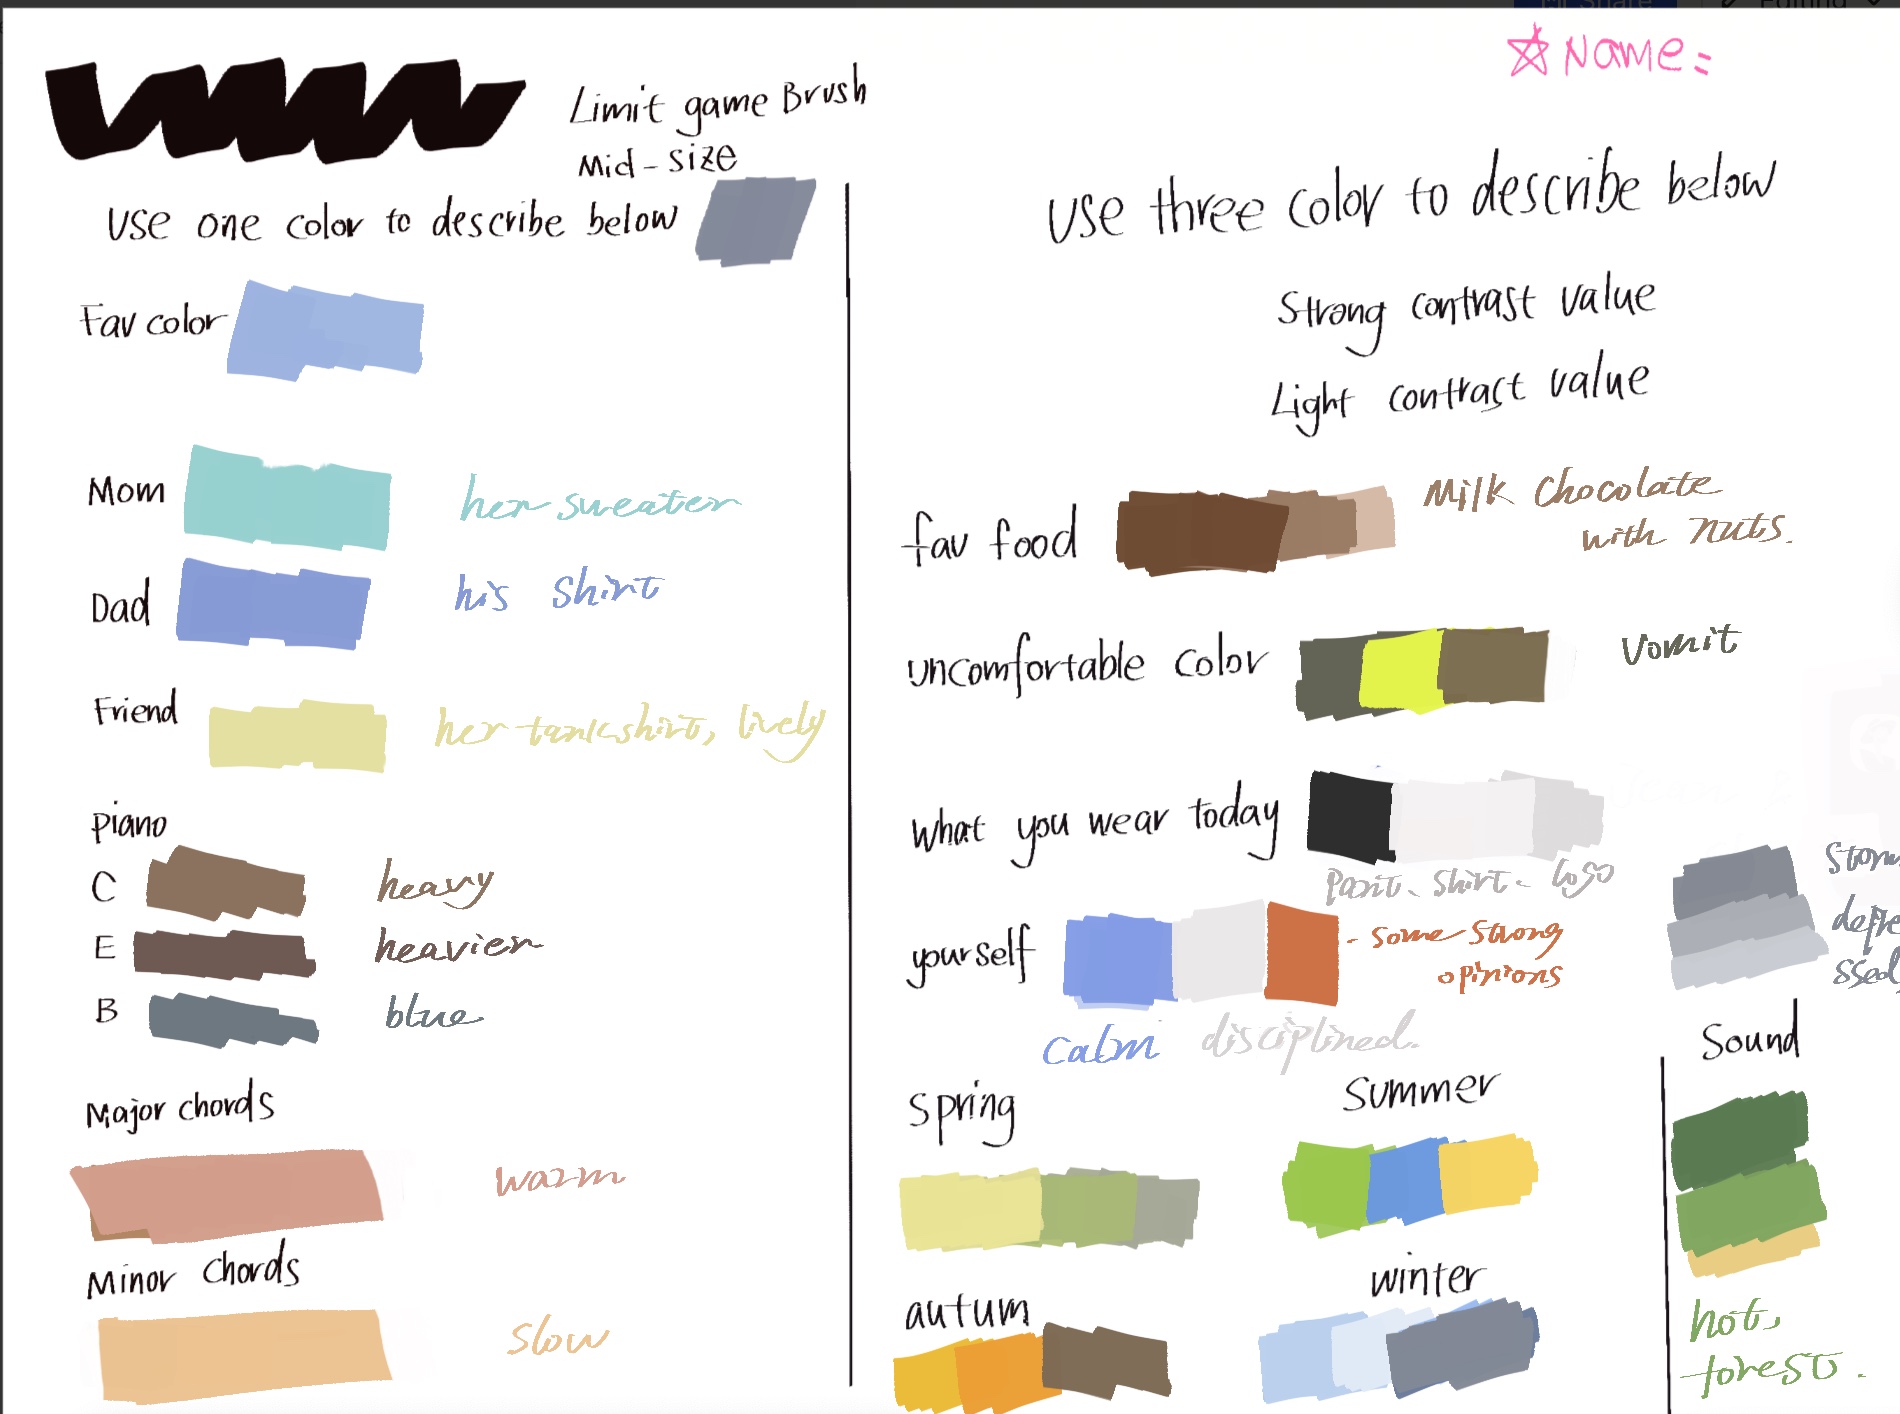 Share
Editing
☆ Name =
Limit game Brush
Mid-size
Use one color to describe below
Fav color
Mom
her sweater
Dad
his shirt
Friend
her tankshirt, lively
piano
C
heavy
E
heavier
B
blue
Major chords
warm
Minor chords
slow
Use three color to describe below
Strong contrast value
Light contrast value
fav food
Milk Chocolate
with nuts.
uncomfortable color
Vomit
What you wear today
Pant. shirt. logo
yourself
- some strong
opinions
calm
disciplined.
spring
summer
autum
winter
depre
ssed
Sound
hot,
forest.